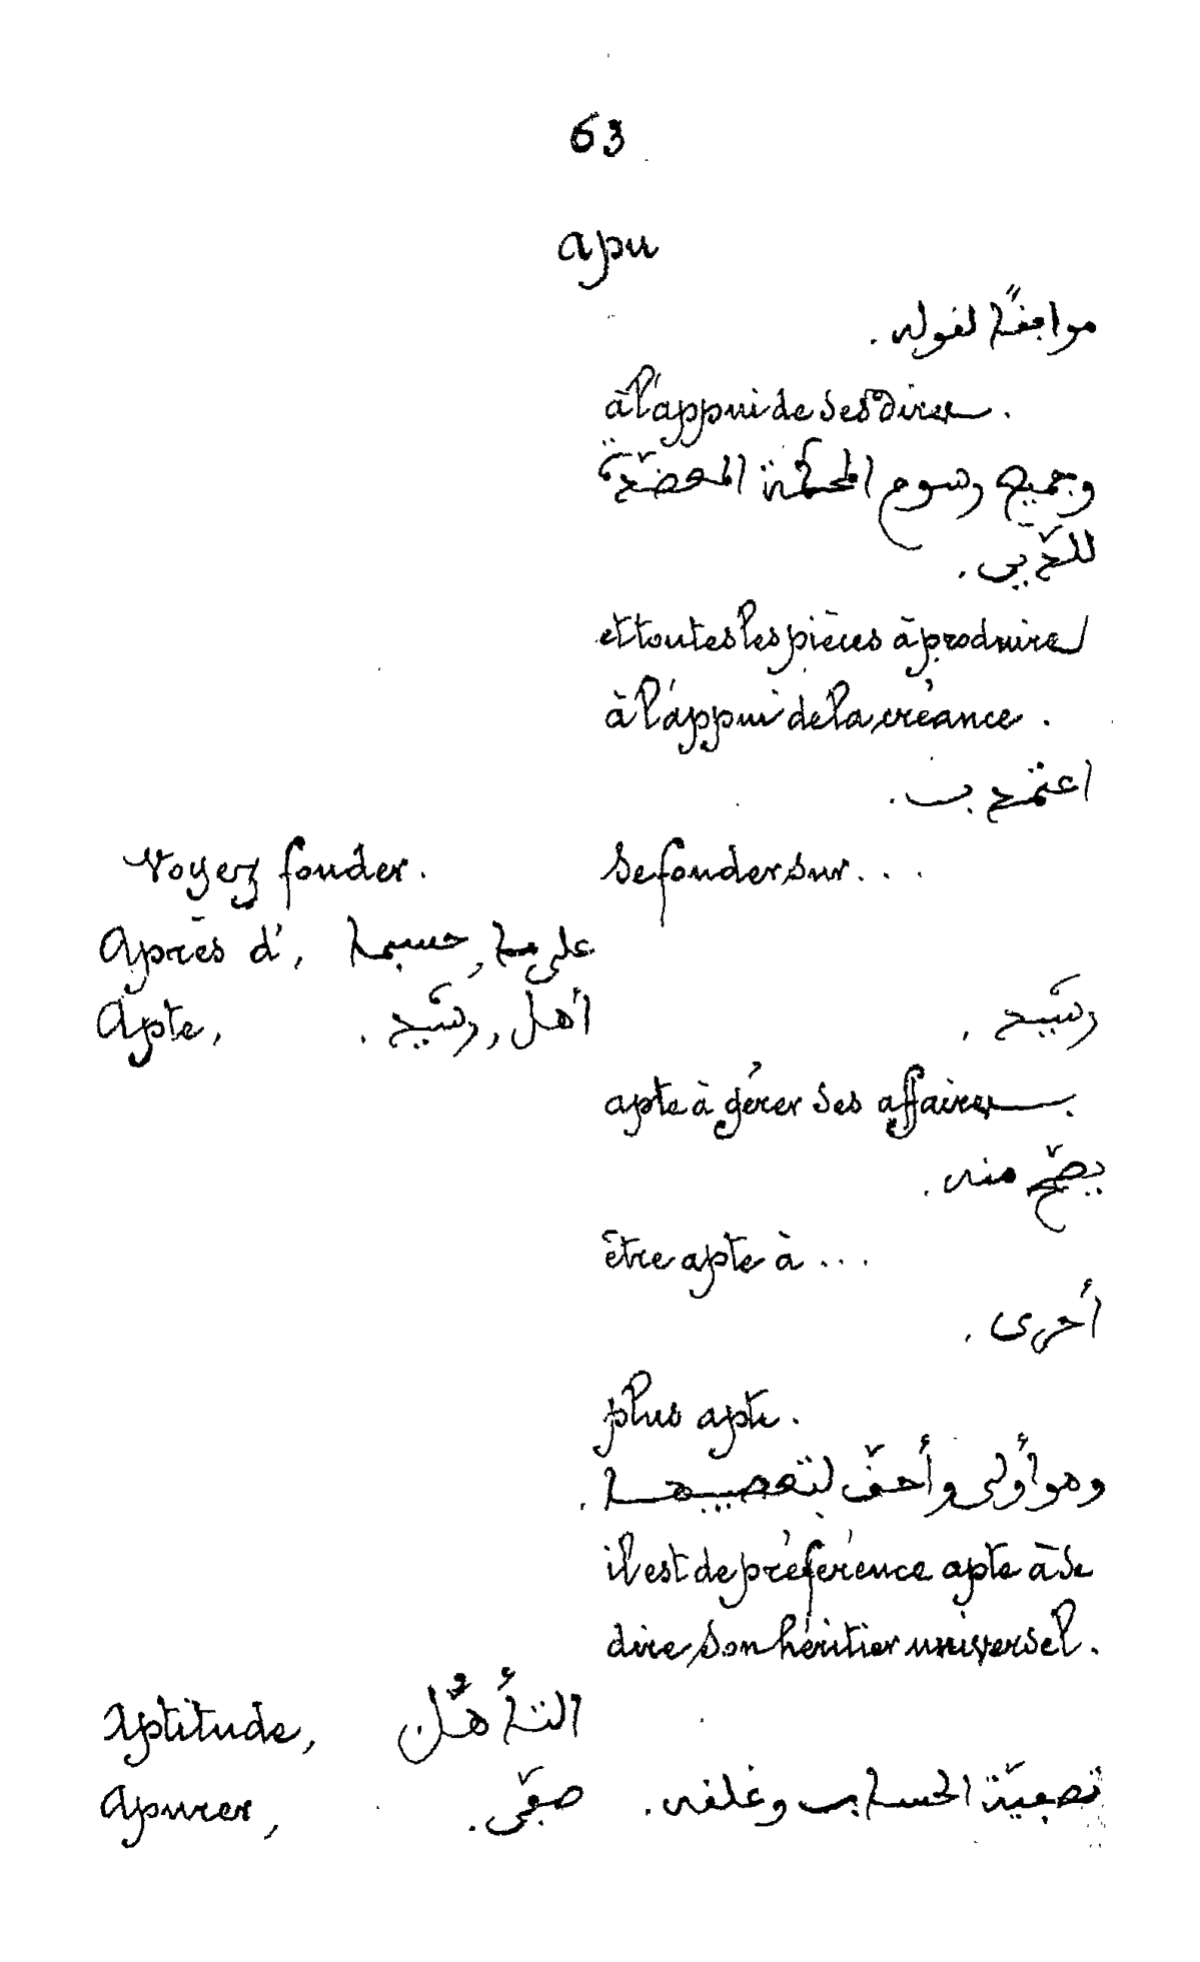 63
apu
موافقة لقوله.
à l'appui de ses dires.
وجميع رسوم المحكمة
للدّين.
et toutes les pièces à produire
à l'appui de la créance.
اعتمد ب.
Voyez fonder. Se fonder sur...
Après d', على ما, حسبما
Apte, أهل, رشيد. رشيد.
apte à gérer ses affaires.
يصحّ منه.
être apte à...
أحرى.
plus apte.
وهو أولى وأحقّ بتعصيبها.
il est de préférence apte à se
dire son héritier universel.
Aptitude, التأهّل
Apurer, صفّى. تصفيّة الحساب وغلقه.